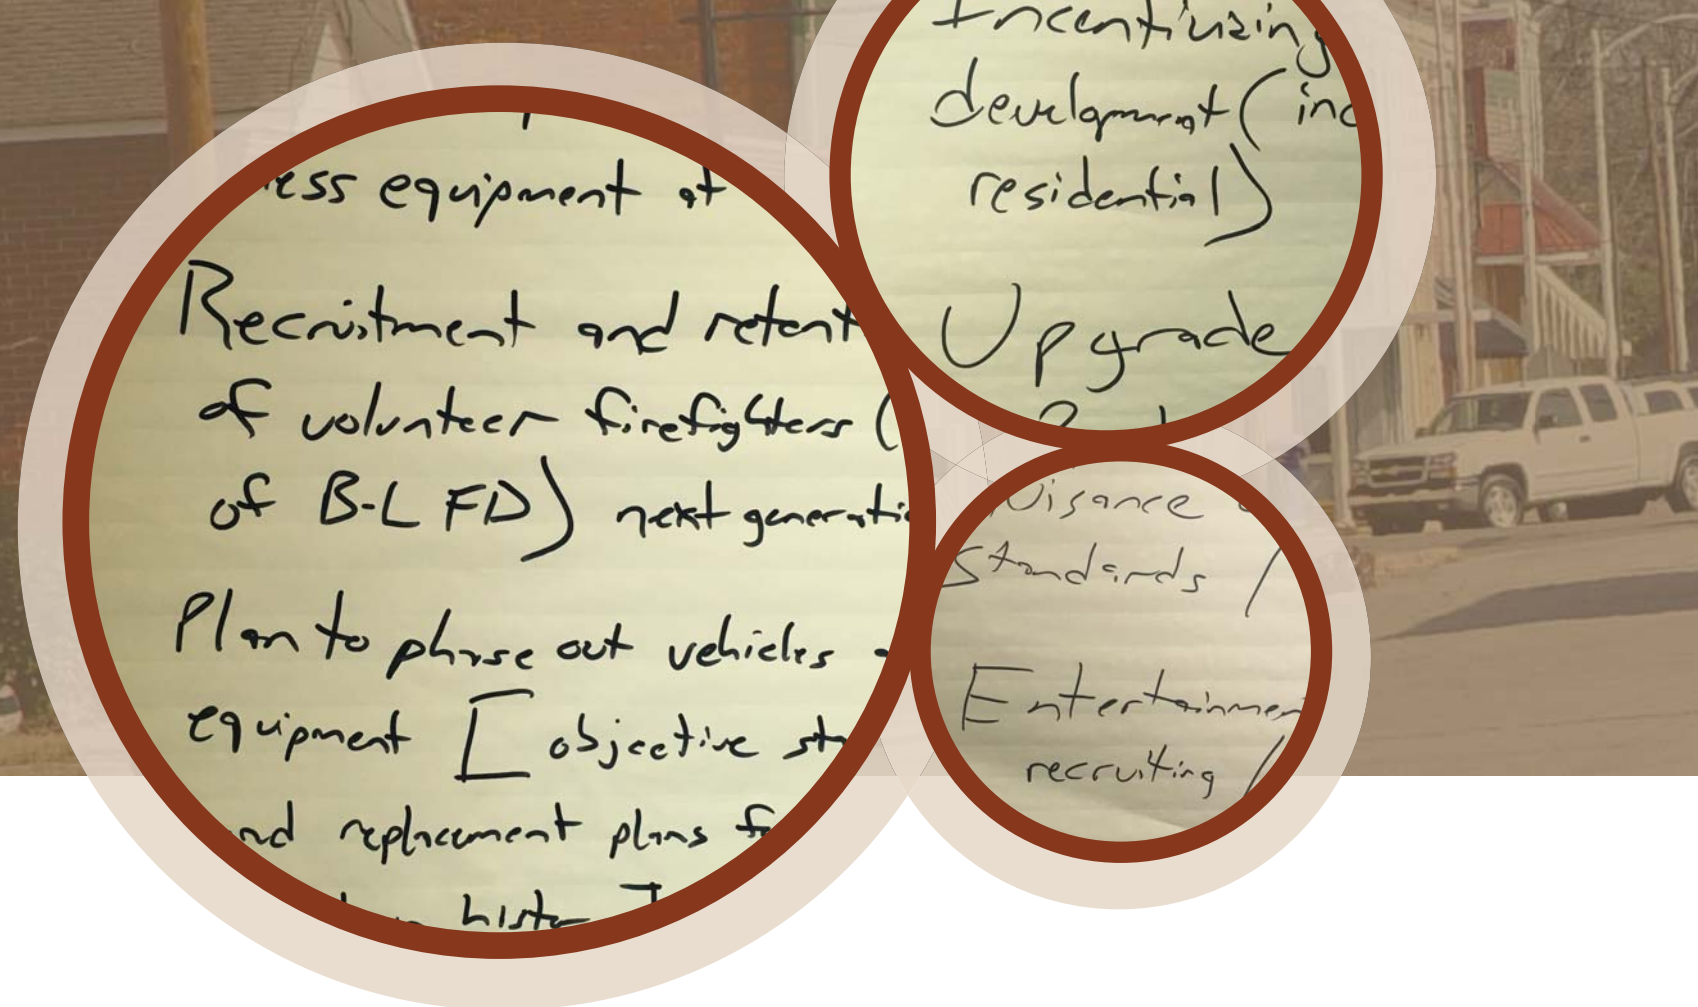 ess equipment at
Recruitment and retent
of volunteer firefighters (
of B-L FD) next generatio
Plan to phase out vehicles
equipment [ objective st
nd replacement plans f
histo
Incentivizing
development (inc
residential)
Upgrade
uisance
Standards /
Entertainmen
recruiting /